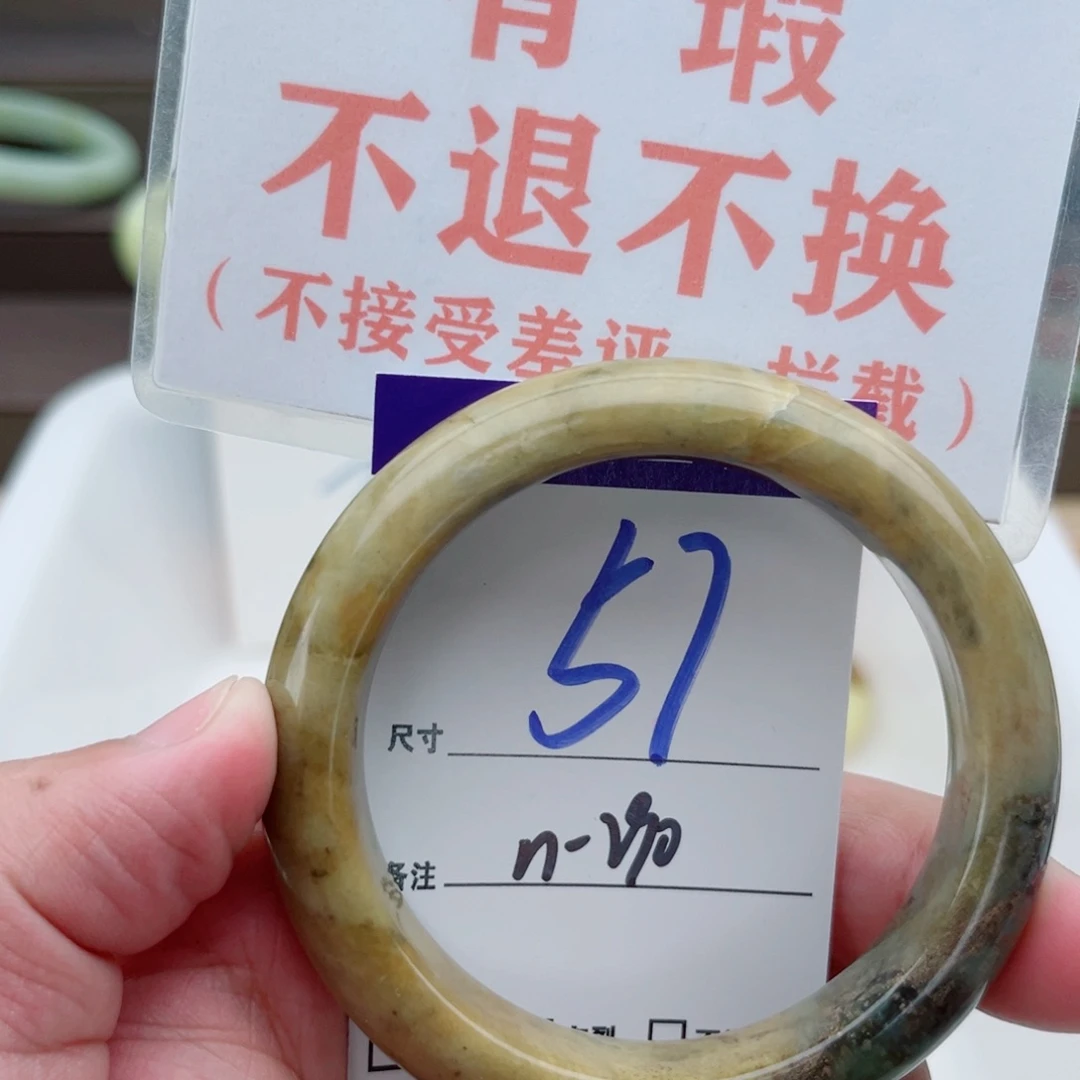 有瑕
不退不换
（不接受差评 拦截）
57
尺寸
备注